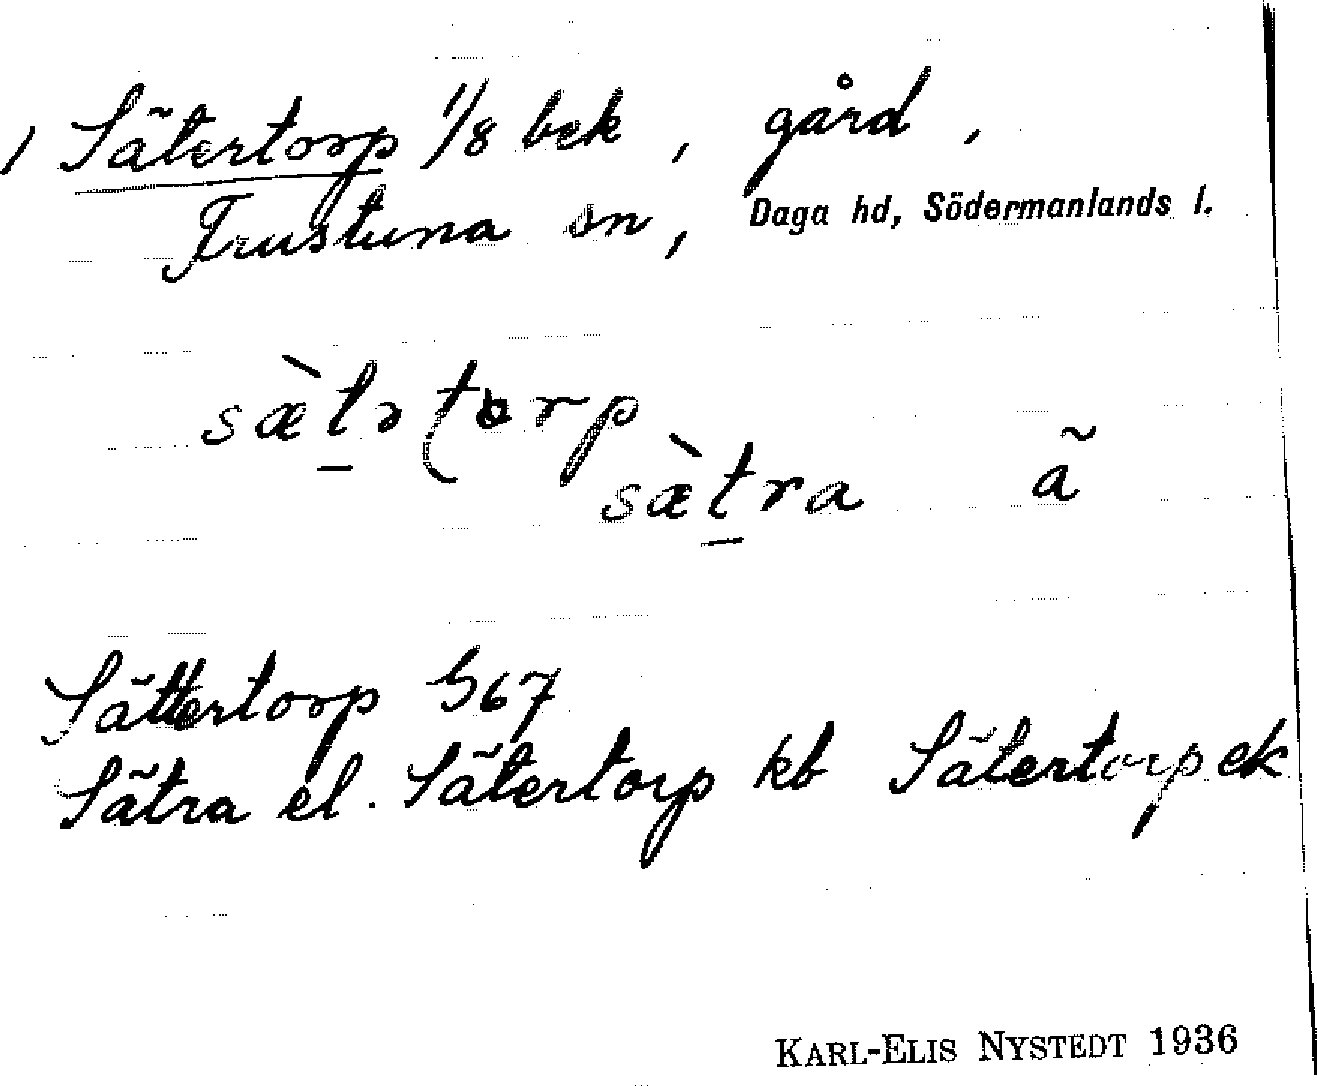 1 Sätertorp 1/8 bek, gård,
Frustuna sn, Daga hd, Södermanlands l.
sæ̀tətorp
sæ̀tra ã
Sättertorp G67
Sätra el. Sätertorp kb Sätertorp ek
KARL-ELIS NYSTEDT 1936